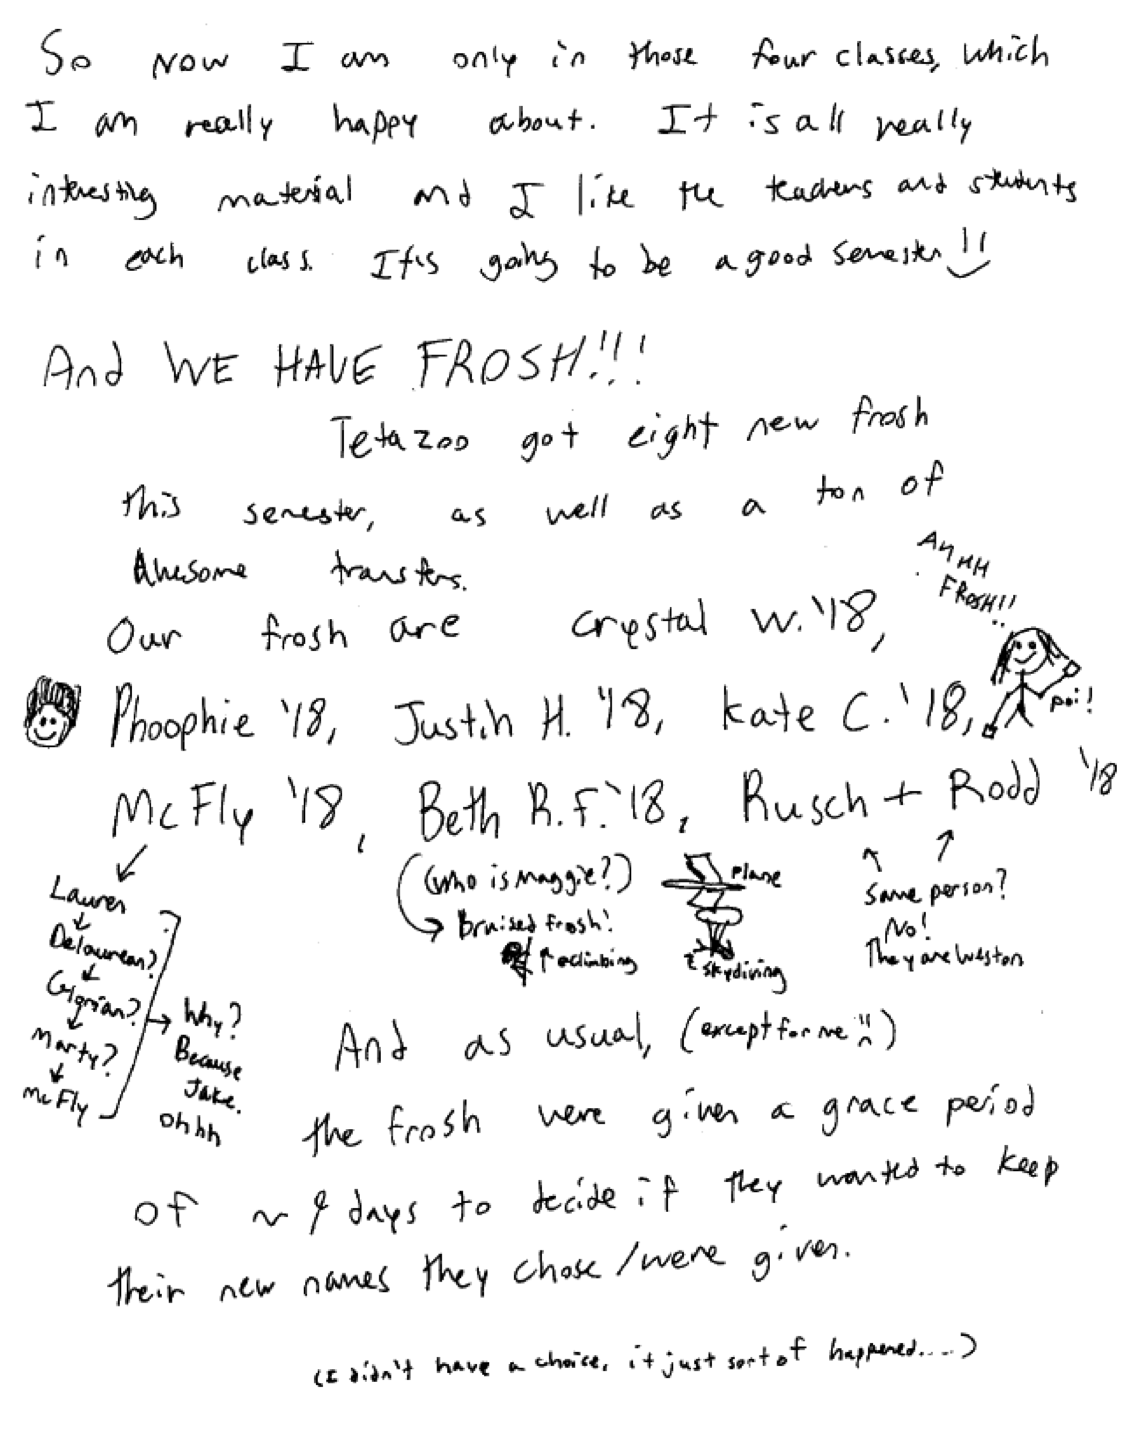 So now I am only in those four classes, which
I am really happy about. It is all really
interesting material and I like the teachers and students
in each class. It's going to be a good semester!!
And WE HAVE FROSH!!!
Tetazoo got eight new frosh
this semester, as well as a ton of
Awesome transfers.
AHHHH
FROSH!!
Our frosh are Crystal W. '18,
Phoophie '18, Justin H. '18, Kate C. '18,
poi!
McFly '18, Beth R.F. '18, Rusch + Rodd '18
(Who is Maggie?)
Bruised frosh!
climbing
Plane
skydiving
Same person?
No!
They are Weston
Lauren
Delaurean?
Marty?
McFly
Why?
Because
Jake.
Ohhh
And as usual, (except for me !!)
the frosh were given a grace period
of ~ 9 days to decide if they wanted to keep
their new names they chose/were given.
(I didn't have a choice, it just sort of happened....)